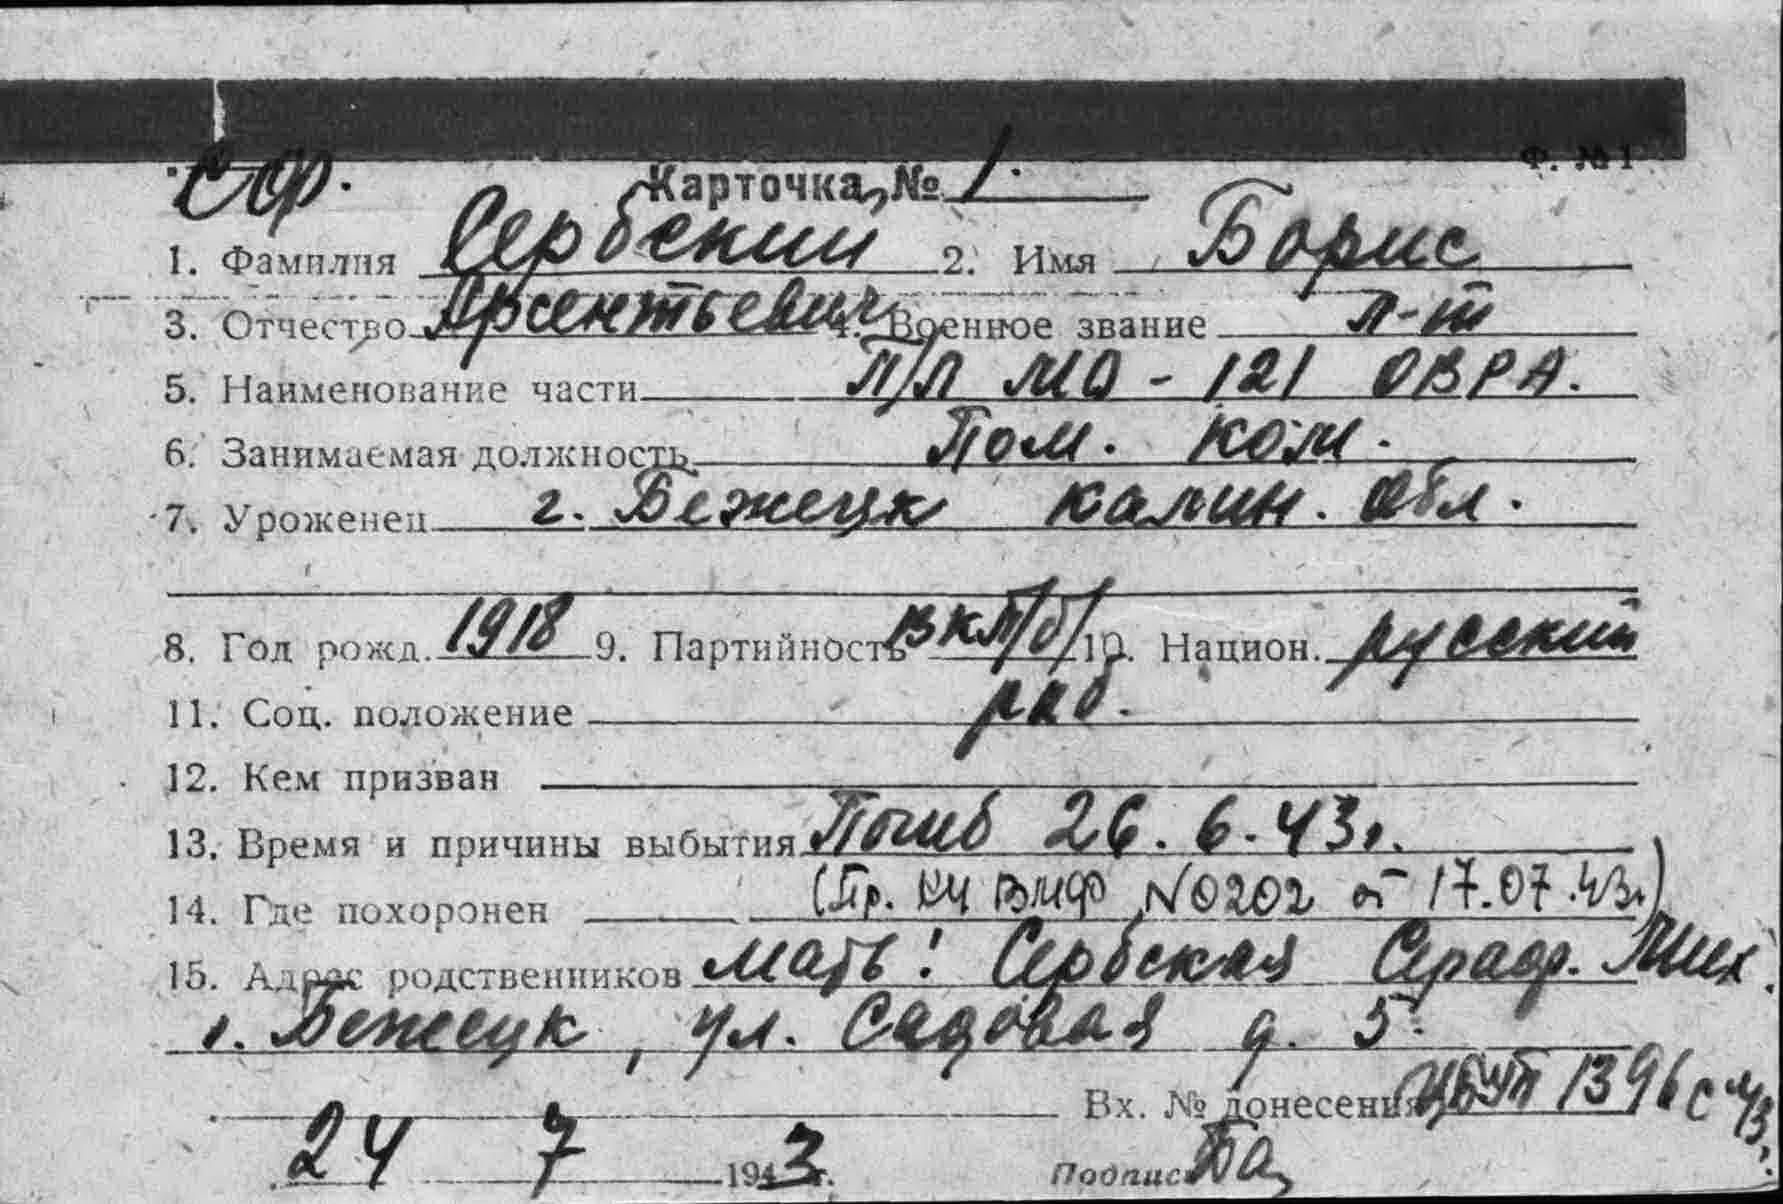 Ф. № 1
СФ. Карточка № 1.
1. Фамилия Сербский 2. Имя Борис
3. Отчество Арсентьевич 4. Военное звание л-т
5. Наименование части П/Л МО - 121 ОВРА.
6. Занимаемая должность Пом. ком.
7. Уроженец г. Бежецк калин. обл.
8. Год рожд. 1918 9. Партийность ВКП/б/ 10. Национ. русский
11. Соц. положение раб.
12. Кем призван
13. Время и причины выбытия Погиб 26.6.43г.
14. Где похоронен (Пр. ВМФ № 0202 от 17.07.43г.)
15. Адрес родственников мать: Сербская Сераф. Мих.
г. Бежецк, ул. Садовая д. 5.
Вх. № донесения 1396с 43г.
24 7 1943г. Подпис